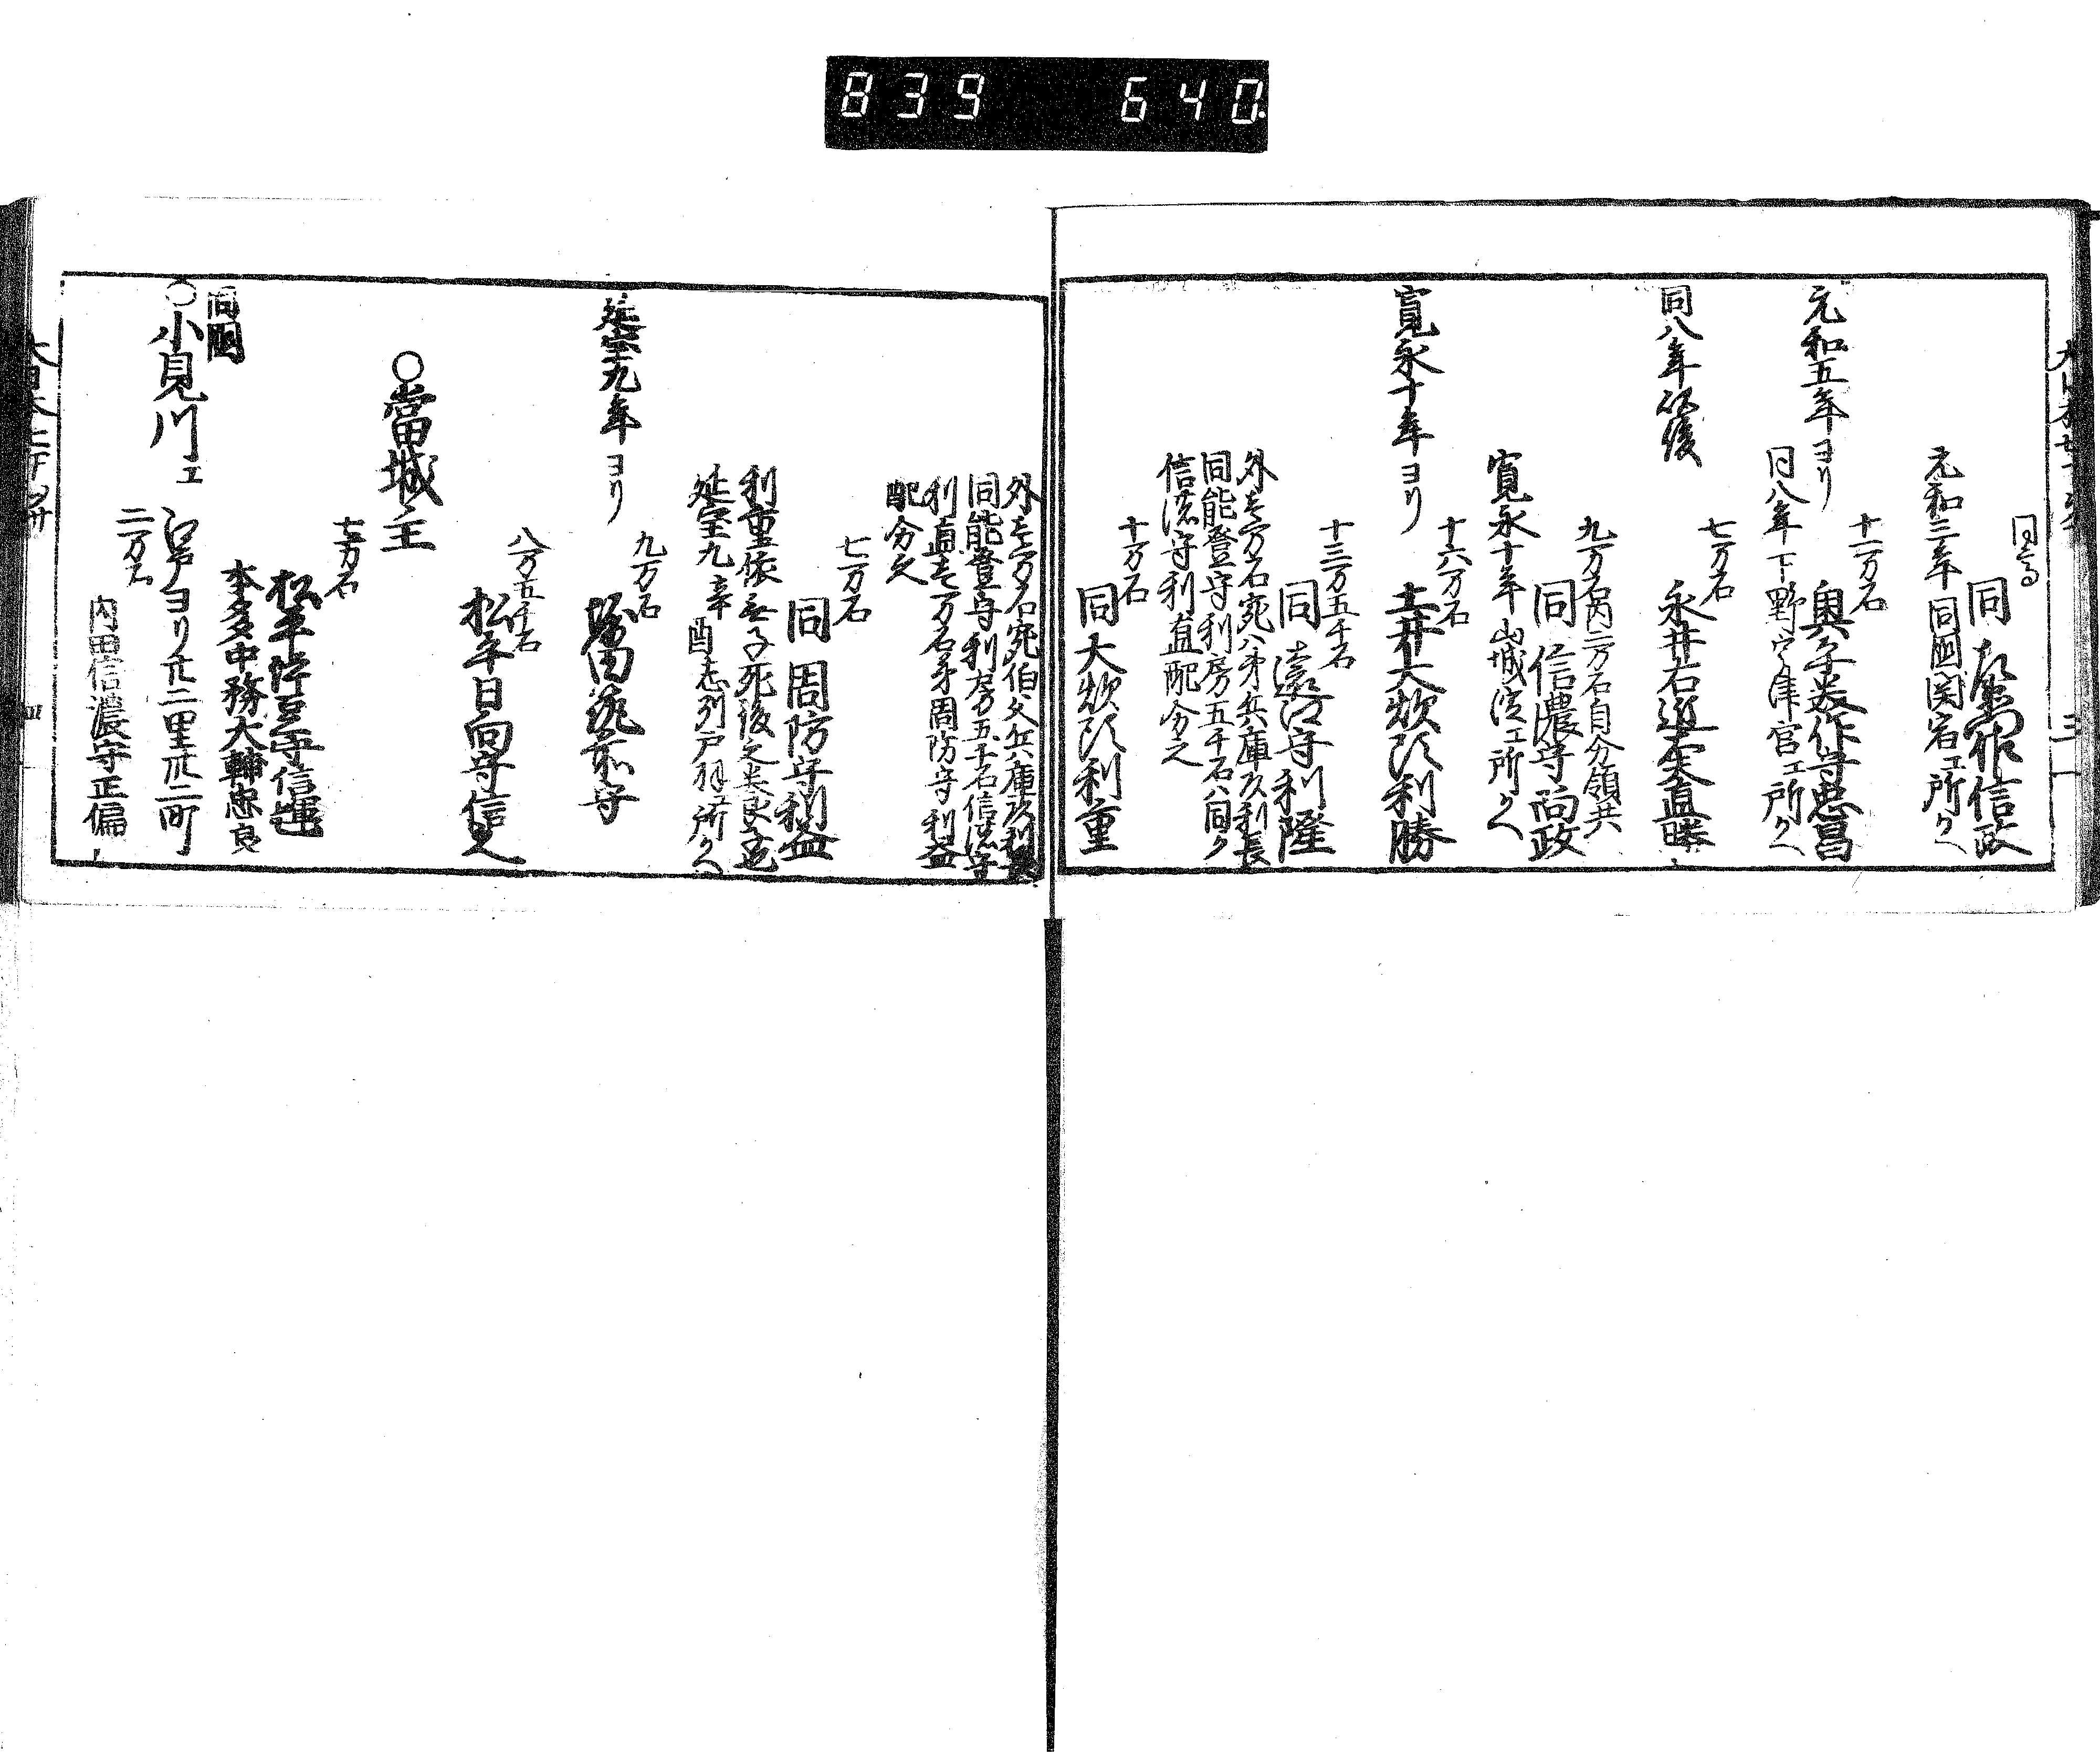 839 640
同高
同 左衛門佐信政
元和三年同國関宿エ所クヘ
十一万石
元和五年ヨリ 奥平美作守忠昌
同八年下野宇津宮エ所クヘ
七万石
同八年以後 永井右近大夫直勝
九万石内二万石自分領共
同 信濃守尚政
寛永十年山城淀エ所クヘ
十六万石
寛永十年ヨリ 土井大炊頭利勝
十三万五千石
同 遠江守利隆
外壱万石宛八弟兵庫頭利長
同能登守利房五千石八同ク
信濃守利直配分之
十万石
同 大炊頭利重
外壱万石宛伯父兵庫頭利長
同能登守利房五千石信濃守
利直壱万石弟周防守利益
配分之
七万石
同 周防守利益
利重依無子死後
延宝九辛酉志列戸羽エ所クヘ
九万石
延宝九年ヨリ 堀田筑前守
八万五千石
松平日向守信之
○當城主
七万石
松平伊豆守信輝
本多中務大輔忠良
同國
○小見川エ 江戸ヨリ廿二里廿二町
二万石
内田信濃守正偏